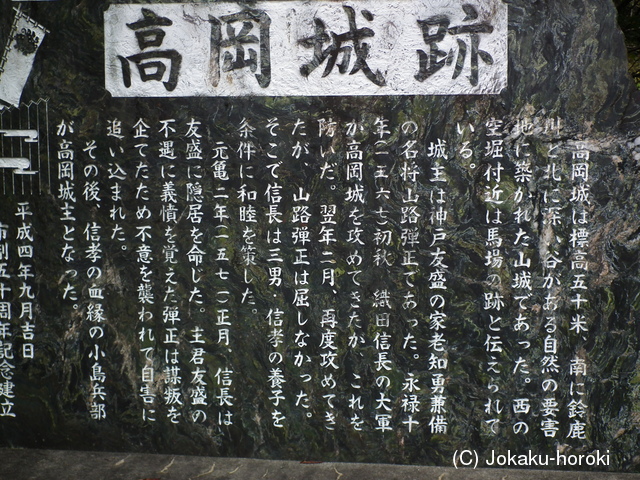 高岡城跡
高岡城は標高五十米、南に鈴鹿
川と北に深い谷がある自然の要害
地に築かれた山城であった。西の
空堀付近は馬場の跡と伝えられて
いる。
城主は神戸友盛の家老知勇兼備
の名将山路弾正であった。永禄十
年(一五六七)初秋 織田信長の大軍
が高岡城を攻めてきたが、これを
防いだ。翌年二月、再度攻めてき
たが、山路弾正は屈しなかった。
そこで信長は三男・信孝の養子を
条件に和睦を策した。
元亀二年(一五七一)正月、信長は
友盛に隠居を命じた。主君友盛の
不遇に義憤を覚えた弾正は謀叛を
企てたため不意を襲われて自害に
追い込まれた。
その後、信孝の血縁の小島兵部
が高岡城主となった。
平成四年九月吉日
市制五十周年記念建立
(C) Jokaku-horoki